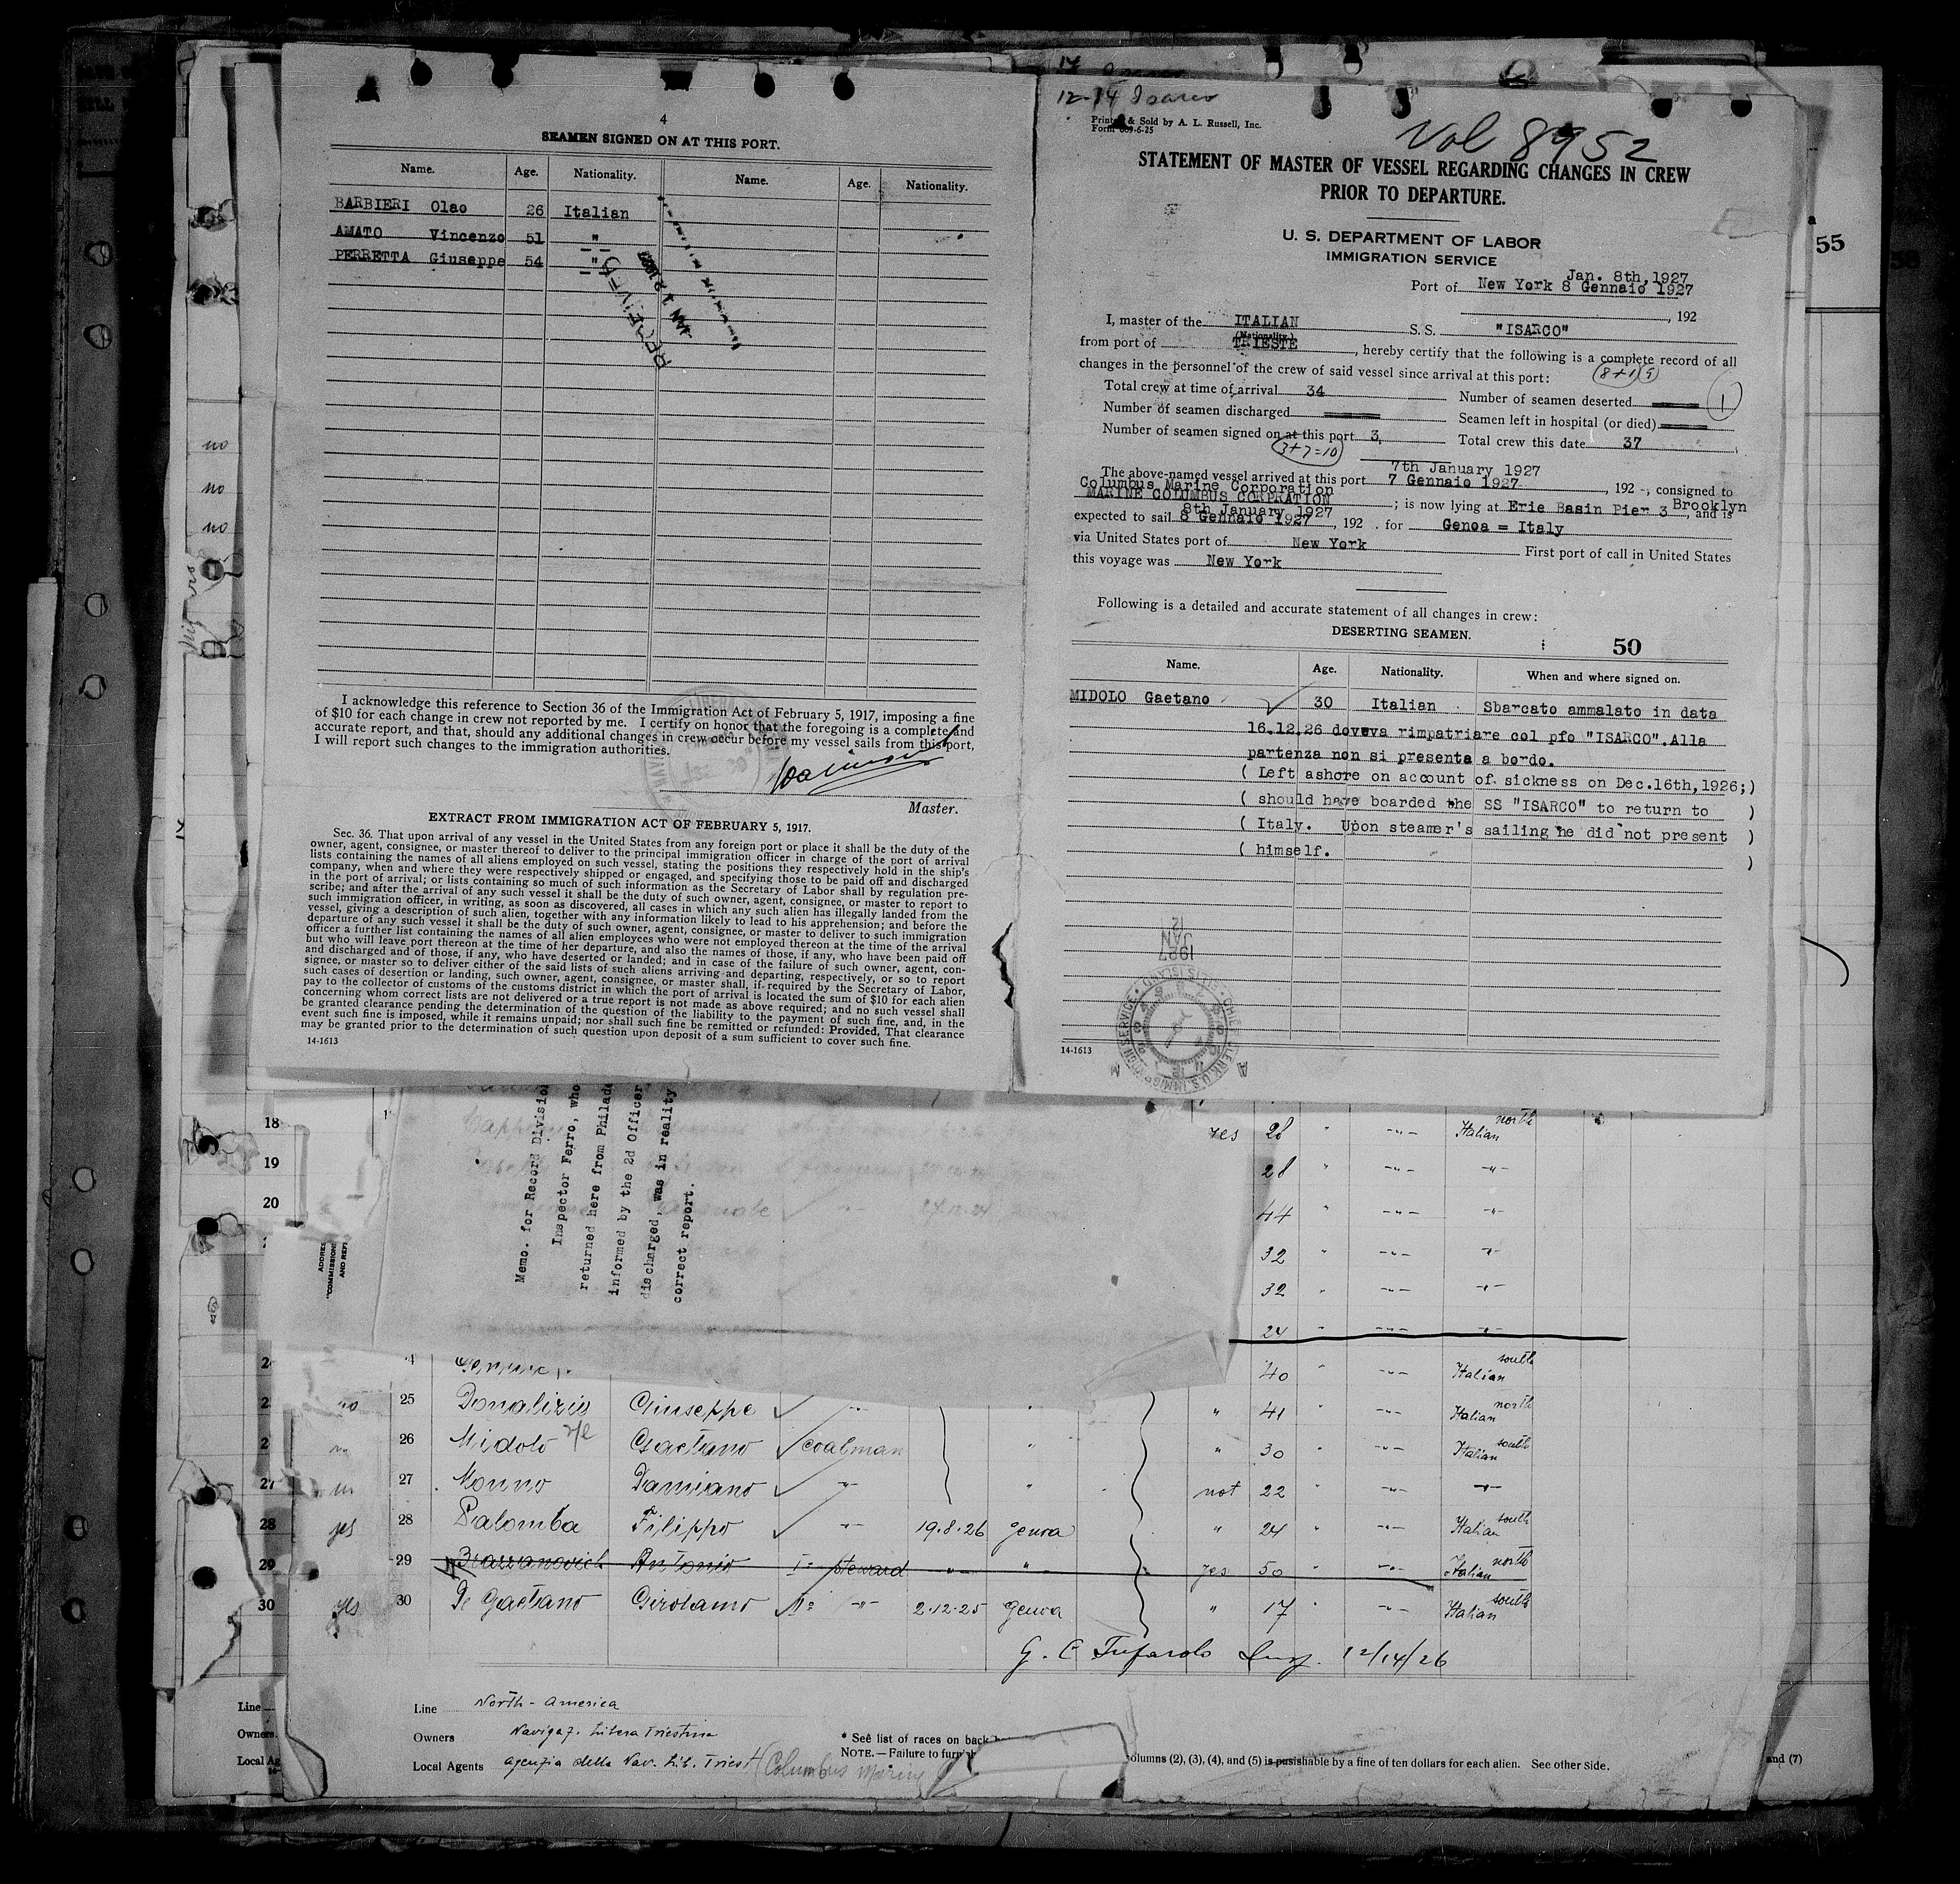 4
SEAMEN SIGNED ON AT THIS PORT.
Name. Age. Nationality. Name. Age. Nationality.
BARBIERI Olao 26 Italian
AMATO Vincenzo 51 "
PERRETTA Giuseppe 54 "
RECEIVED
JAN 12 1927
I acknowledge this reference to Section 36 of the Immigration Act of February 5, 1917, imposing a fine
of $10 for each change in crew not reported by me. I certify on honor that the foregoing is a complete and
accurate report, and that, should any additional changes in crew occur before my vessel sails from this port,
I will report such changes to the immigration authorities.
Master.
EXTRACT FROM IMMIGRATION ACT OF FEBRUARY 5, 1917.
Sec. 36. That upon arrival of any vessel in the United States from any foreign port or place it shall be the duty of the
owner, agent, consignee, or master thereof to deliver to the principal immigration officer in charge of the port of arrival
lists containing the names of all aliens employed on such vessel, stating the positions they respectively hold in the ship's
company, when and where they were respectively shipped or engaged, and specifying those to be paid off and discharged
in the port of arrival; or lists containing so much of such information as the Secretary of Labor shall by regulation pre-
scribe; and after the arrival of any such vessel it shall be the duty of such owner, agent, consignee, or master to report to
such immigration officer, in writing, as soon as discovered, all cases in which any such alien has illegally landed from the
vessel, giving a description of such alien, together with any information likely to lead to his apprehension; and before the
departure of any such vessel it shall be the duty of such owner, agent, consignee, or master to deliver to such immigration
officer a further list containing the names of all alien employees who were not employed thereon at the time of the arrival
but who will leave port thereon at the time of her departure, and also the names of those, if any, who have been paid off
and discharged and of those, if any, who have deserted or landed; and in case of the failure of such owner, agent, con-
signee, or master so to deliver either of the said lists of such aliens arriving and departing, respectively, or so to report
such cases of desertion or landing, such owner, agent, consignee, or master shall, if required by the Secretary of Labor,
pay to the collector of customs of the customs district in which the port of arrival is located the sum of $10 for each alien
concerning whom correct lists are not delivered or a true report is not made as above required; and no such vessel shall
be granted clearance pending the determination of the question of the liability to the payment of such fine, and, in the
event such fine is imposed, while it remains unpaid; nor shall such fine be remitted or refunded: Provided, That clearance
may be granted prior to the determination of such question upon deposit of a sum sufficient to cover such fine.
14-1613
12-14 Isarco
Printed & Sold by A. L. Russell, Inc.
Form 689-6-25
Vol 8952
STATEMENT OF MASTER OF VESSEL REGARDING CHANGES IN CREW
PRIOR TO DEPARTURE.
U. S. DEPARTMENT OF LABOR
IMMIGRATION SERVICE
Jan. 8th, 1927
Port of New York 8 Gennaio 1927
, 192
I, master of the ITALIAN S. S. "ISARCO"
(Nationality.)
from port of TRIESTE, hereby certify that the following is a complete record of all
changes in the personnel of the crew of said vessel since arrival at this port: 8+1 9
Total crew at time of arrival 34 Number of seamen deserted 1
Number of seamen discharged Seamen left in hospital (or died)
Number of seamen signed on at this port 3, Total crew this date 37
3+7=10
7th January 1927
The above-named vessel arrived at this port 7 Gennaio 1927, 192 -, consigned to
Columbus Marine Corporation
MARINE COLUMBUS CORPRATION ; is now lying at Erie Basin Pier 3 Brooklyn, and is
8th January 1927
expected to sail 8 Gennaio 1927, 192 . for Genoa = Italy
via United States port of New York First port of call in United States
this voyage was New York
Following is a detailed and accurate statement of all changes in crew:
DESERTING SEAMEN. 50
Name. Age. Nationality. When and where signed on.
MIDOLO Gaetano 30 Italian Sbarcato ammalato in data
16.12.26 doveva rimpatriare col pfo "ISARCO". Alla
partenza non si presenta a bordo.
( Left ashore on account of sickness on Dec.16th,1926;)
( should have boarded the SS "ISARCO" to return to )
( Italy. Upon steamer's sailing he did not present )
( himself. )
1927
JAN
12
14-1613
55
no
no
no
Memo. for Record Division
Inspector Ferro, who
returned here from Philade
informed by the 2d Officer
discharged, was in reality
correct report.
18 yes 28 " -"- Italian north
19 28 " -"- -"-
20 44 " -"- -"-
32 " -"- -"-
32 " -"- -"-
24 " -"- -"-
40 " -"- Italian south
no 25 Giuseppe " 41 " -"- Italian north
26 Midolo Gaetano coalman " " 30 " -"- Italian south
27 27 Nonno Damiano -"- " not 22 " -"- -"-
28 yes 28 Palomba Filippo -"- 19.8.26 Genoa " 24 " -"- Italian south
29 29 Brazzanovich Antonio I° steward -"- " yes 50 " -"- Italian north
30 yes 30 De Gaetano Girolamo II° -"- 2.12.25 Genoa " 17 " -"- Italian south
12/14/26
Line North-America
Owners Navigaz. Libera Triestina
Local Agents Agenzia della Nav. Lib. Triest Columbus Marine
* See list of races on back
NOTE.—Failure to furnish
olumns (2), (3), (4), and (5) is punishable by a fine of ten dollars for each alien. See other side.
and (7)
Line
Owners
Local Ag